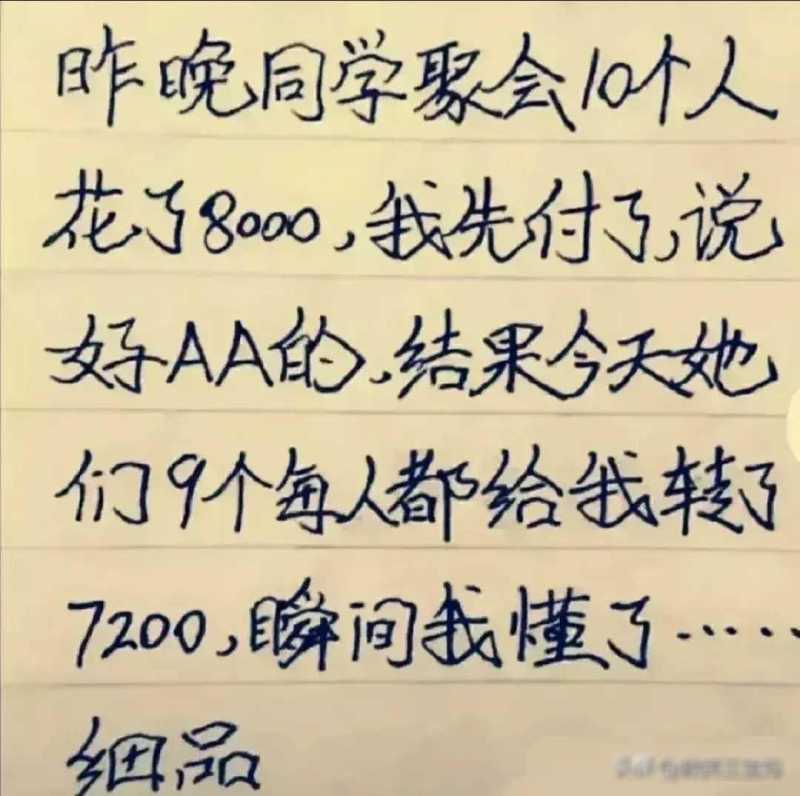 昨晚同学聚会10个人
花了8000,我先付了,说
好AA的,结果今天她
们9个每人都给我转了
7200,瞬间我懂了……
细品